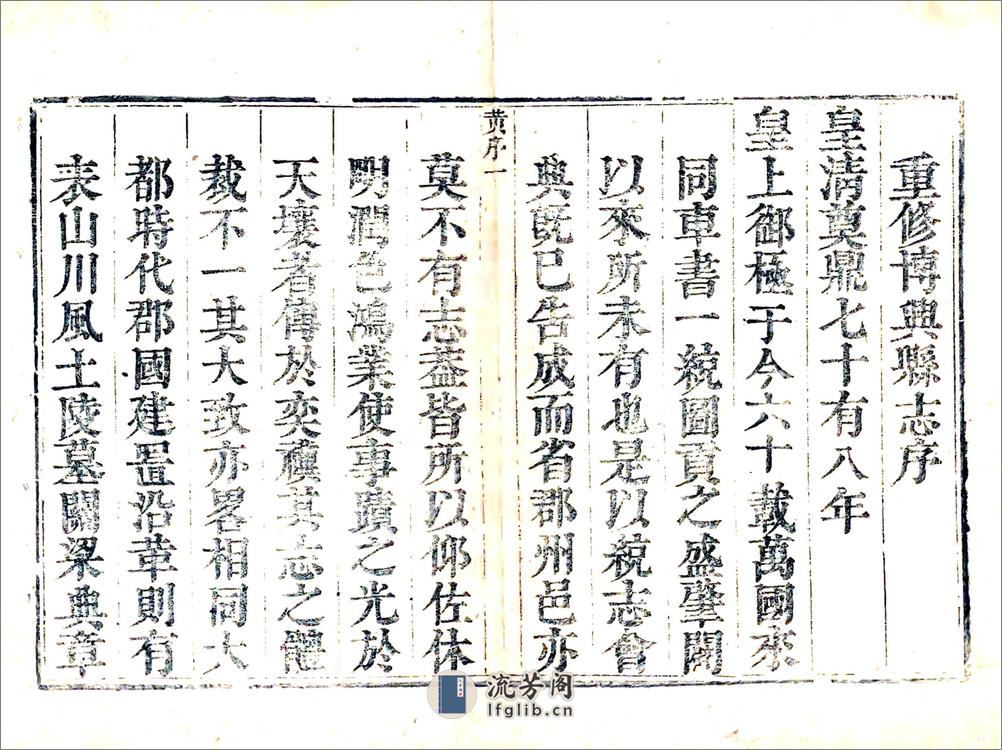 重修博興縣志序
皇清奠鼎七十有八年
皇上御極于今六十載萬國來
同車書一統圖貢之盛肇闢
以來所未有也是以統志會
典既已告成而省郡州邑亦
黄序一
莫不有志葢皆所以仰佐休
明潤色鴻業使事蹟之光於
天壤者傳於奕禩其志之體
裁不一其大致亦畧相同大
都時代郡國建置沿革則有
表山川風土陵墓關梁典章
流芳阁
lfglib.cn